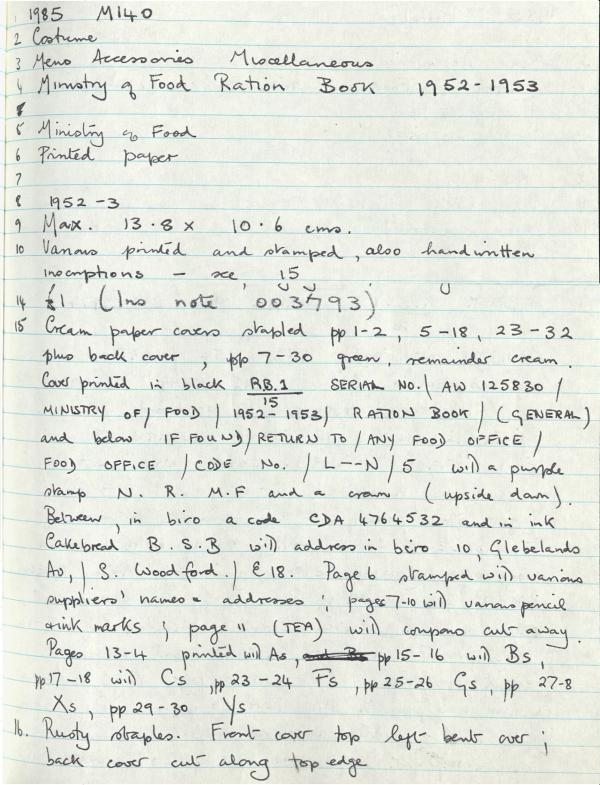 1 1985 M140
2 Costume
3 Mens Accessories Miscellaneous
4 Ministry of Food Ration Book 1952-1953
5 Ministry of Food
6 Printed paper
7
8 1952-3
9 Max. 13.8 x 10.6 cms.
10 Various printed and stamped, also handwritten
inscriptions - see, 15
14 £1 (Ins note 003793)
15 Cream paper covers stapled pp 1-2, 5-18, 23-32
plus back cover, pp 7-30 green, remainder cream.
Cover printed in black R.B.1 SERIAL NO. / AW 125830 /
15
MINISTRY OF / FOOD / 1952-1953 / RATION BOOK / (GENERAL)
and below IF FOUND / RETURN TO / ANY FOOD OFFICE /
FOOD OFFICE / CODE No. / L--N / 5 with a purple
stamp N. R. M. F and a crown (upside down).
Between, in biro a code CDA 4764532 and in ink
Cakebread B. S. B with address in biro 10, Glebelands
Av, / S. Woodford. / E18. Page 6 stamped with various
suppliers' names & addresses; pages 7-10 with various pencil
& ink marks; page 11 (TEA) with coupons cut away.
Pages 13-4 printed with As, pp 15-16 with Bs,
pp 17-18 with Cs, pp 23-24 Fs, pp 25-26 Gs, pp 27-8
Xs, pp 29-30 Ys
16. Rusty staples. Front cover top left bent over;
back cover cut along top edge